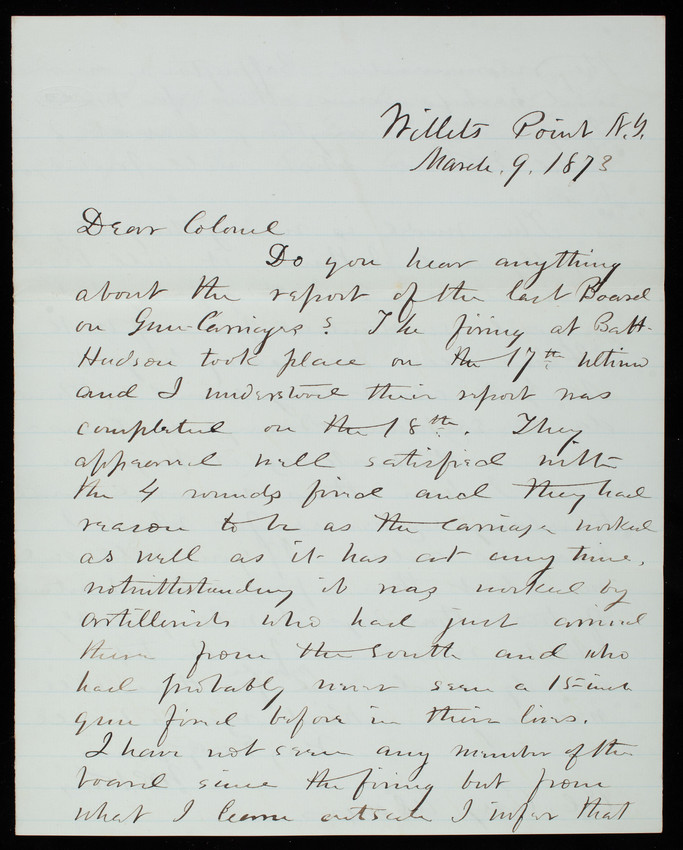 Willets Point N.Y.
March. 9. 1873
Dear Colonel
Do you hear anything
about the report of the last Board
on Gun-Carriages? The firing at Batt.
Hudson took place on the 17th ultimo
and I understood their report was
completed on the 18th. They
appeared well satisfied with
the 4 rounds fired and they had
reason to be as the carriage worked
as well as it has at any time,
notwithstanding it was worked by
artillerists who had just arrived
there from the South and who
had probably never seen a 15-inch
gun fired before in their lives.
I have not seen any member of the
board since the firing but from
what I learn outside I infer that